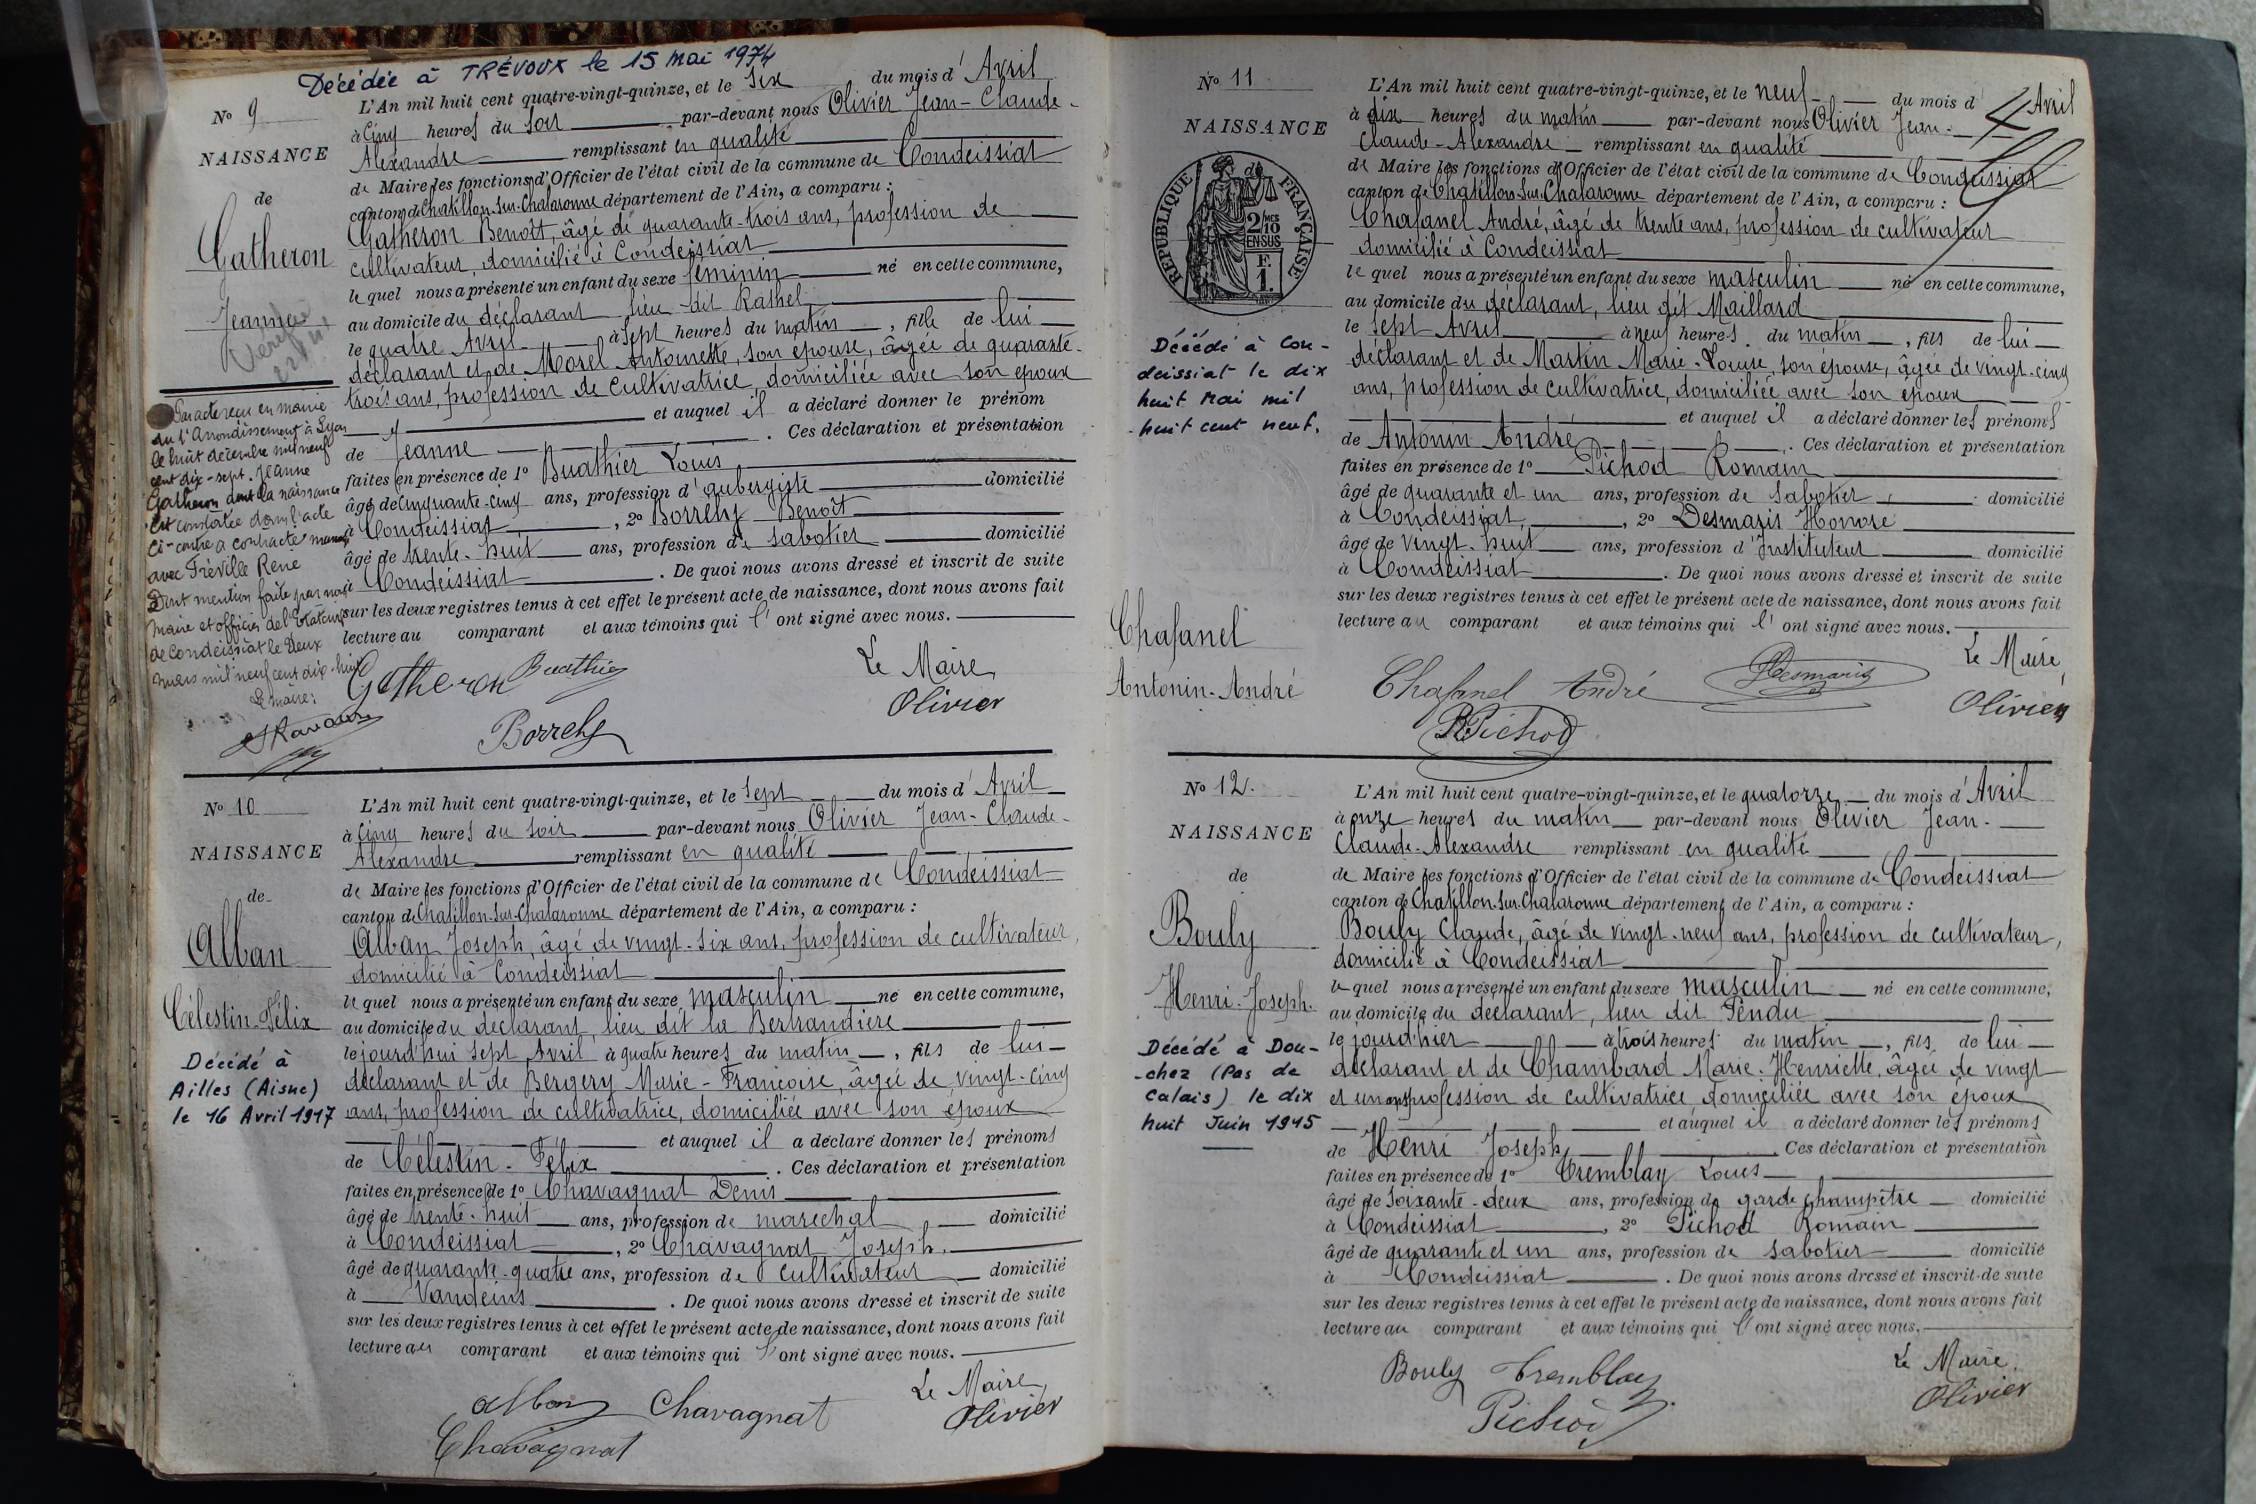 Décédée à TRÉVOUX le 15 mai 1974
No 9
NAISSANCE
de
Gatheron
Jeanne
L'An mil huit cent quatre-vingt-quinze, et le Six du mois d'Avril
à Cinq heures du soir par-devant nous Olivier Jean-Claude-
Alexandre remplissant en qualité
de Maire les fonctions d'Officier de l'état civil de la commune de Condeissiat
canton de Chatillon-sur-Chalaronne département de l'Ain, a comparu :
Gatheron Benoît, âgé de quarante-trois ans, profession de
cultivateur, domicilié à Condeissiat
le quel nous a présenté un enfant du sexe féminin né en cette commune,
au domicile du déclarant lieu dit
le quatre Avril à Sept heures du matin, fille de lui
déclarant et de Morel Antoinette, son épouse, âgée de quarante-
trois ans, profession de cultivatrice, domiciliée avec son époux
et auquel il a déclaré donner le prénom
de Jeanne . Ces déclaration et présentation
faites en présence de 1o Buathier Louis
âgé de Cinquante-cinq ans, profession d'aubergiste domicilié
à Condeissiat, 2o Borrely Benoît
âgé de trente-huit ans, profession de sabotier domicilié
à Condeissiat. De quoi nous avons dressé et inscrit de suite
sur les deux registres tenus à cet effet le présent acte de naissance, dont nous avons fait
lecture au comparant et aux témoins qui l'ont signé avec nous.
Par acte reçu en mairie
du 1er Arrondissement à Lyon
le huit décembre mil neuf
cent dix-sept. Jeanne
Gatheron dont la naissance
est constatée dans l'acte
ci-contre a contracté mariage
avec Fréville René
Dont mention faite par nous
Maire et officier de l'Etat civil
de Condeissiat le Deux
mars mil neuf cent dix-huit
Le maire:
Gatheron Buathier
Borrely
Le Maire
Olivier
No 10
NAISSANCE
de
Alban
Célestin-Félix
Décédé à
Ailles (Aisne)
le 16 Avril 1917
L'An mil huit cent quatre-vingt-quinze, et le Sept du mois d'Avril
à Cinq heures du soir par-devant nous Olivier Jean-Claude-
Alexandre remplissant en qualité
de Maire les fonctions d'Officier de l'état civil de la commune de Condeissiat
canton de Chatillon-sur-Chalaronne département de l'Ain, a comparu :
Alban Joseph, âgé de vingt-six ans, profession de cultivateur,
domicilié à Condeissiat
le quel nous a présenté un enfant du sexe masculin né en cette commune,
au domicile du déclarant, lieu dit la Bertrandière
le jourd'hui sept Avril à quatre heures du matin, fils de lui
déclarant et de Bergery Marie-Françoise, âgée de vingt-cinq
ans, profession de cultivatrice, domiciliée avec son époux
et auquel il a déclaré donner les prénoms
de Célestin-Félix . Ces déclaration et présentation
faites en présence de 1o Chavagnat Denis
âgé de trente-huit ans, profession de maréchal domicilié
à Condeissiat, 2o Chavagnat Joseph.
âgé de quarante-quatre ans, profession de cultivateur domicilié
à Vandeins . De quoi nous avons dressé et inscrit de suite
sur les deux registres tenus à cet effet le présent acte de naissance, dont nous avons fait
lecture au comparant et aux témoins qui l'ont signé avec nous.
Alban Chavagnat
Chavagnat
Le Maire
Olivier
No 11
NAISSANCE
RÉPUBLIQUE FRANÇAISE
2/10
EN SUS
F.
1.
Décédé à Con-
deissiat le dix
huit Mai mil
huit cent neuf.
Chafanel
Antonin-André
L'An mil huit cent quatre-vingt-quinze, et le neuf du mois d'Avril
à dix heures du matin par-devant nous Olivier Jean-
Claude-Alexandre remplissant en qualité
de Maire les fonctions d'Officier de l'état civil de la commune de Condeissiat
canton de Chatillon-sur-Chalaronne département de l'Ain, a comparu :
Chafanel André, âgé de trente ans, profession de cultivateur
domicilié à Condeissiat
le quel nous a présenté un enfant du sexe masculin né en cette commune,
au domicile du déclarant, lieu dit Maillard
le sept Avril à neuf heures du matin, fils de lui
déclarant et de Martin Marie-Louise, son épouse, âgée de vingt-cinq
ans, profession de cultivatrice, domiciliée avec son époux
et auquel il a déclaré donner les prénoms
de Antonin André . Ces déclaration et présentation
faites en présence de 1o Pichod Romain
âgé de quarante et un ans, profession de sabotier, domicilié
à Condeissiat, 2o Desmaris Honoré
âgé de vingt-huit ans, profession d'Instituteur domicilié
à Condeissiat . De quoi nous avons dressé et inscrit de suite
sur les deux registres tenus à cet effet le présent acte de naissance, dont nous avons fait
lecture au comparant et aux témoins qui l'ont signé avec nous.
Chafanel André Desmaris
R Pichod
Le Maire,
Olivier
No 12.
NAISSANCE
de
Bouly
Henri-Joseph.
Décédé à Dou-
-chez (Pas de
Calais) le dix
huit Juin 1915
L'An mil huit cent quatre-vingt-quinze, et le quatorze du mois d'Avril
à onze heures du matin par-devant nous Olivier Jean-
Claude-Alexandre remplissant en qualité
de Maire les fonctions d'Officier de l'état civil de la commune de Condeissiat
canton de Chatillon-sur-Chalaronne département de l'Ain, a comparu :
Bouly Claude, âgé de vingt-neuf ans, profession de cultivateur,
domicilié à Condeissiat
le quel nous a présenté un enfant du sexe masculin né en cette commune,
au domicile du déclarant, lieu dit Pendu
le jourd'hier à trois heures du matin, fils de lui
déclarant et de Chambard Marie-Henriette, âgée de vingt
et un ans profession de cultivatrice domiciliée avec son époux
et auquel il a déclaré donner les prénoms
de Henri Joseph . Ces déclaration et présentation
faites en présence de 1o Tremblay Louis
âgé de soixante-deux ans, profession de garde champêtre domicilié
à Condeissiat, 2o Pichod Romain
âgé de quarante et un ans, profession de sabotier domicilié
à Condeissiat . De quoi nous avons dressé et inscrit de suite
sur les deux registres tenus à cet effet le présent acte de naissance, dont nous avons fait
lecture au comparant et aux témoins qui l'ont signé avec nous.
Bouly Tremblay
Pichod
Le Maire,
Olivier